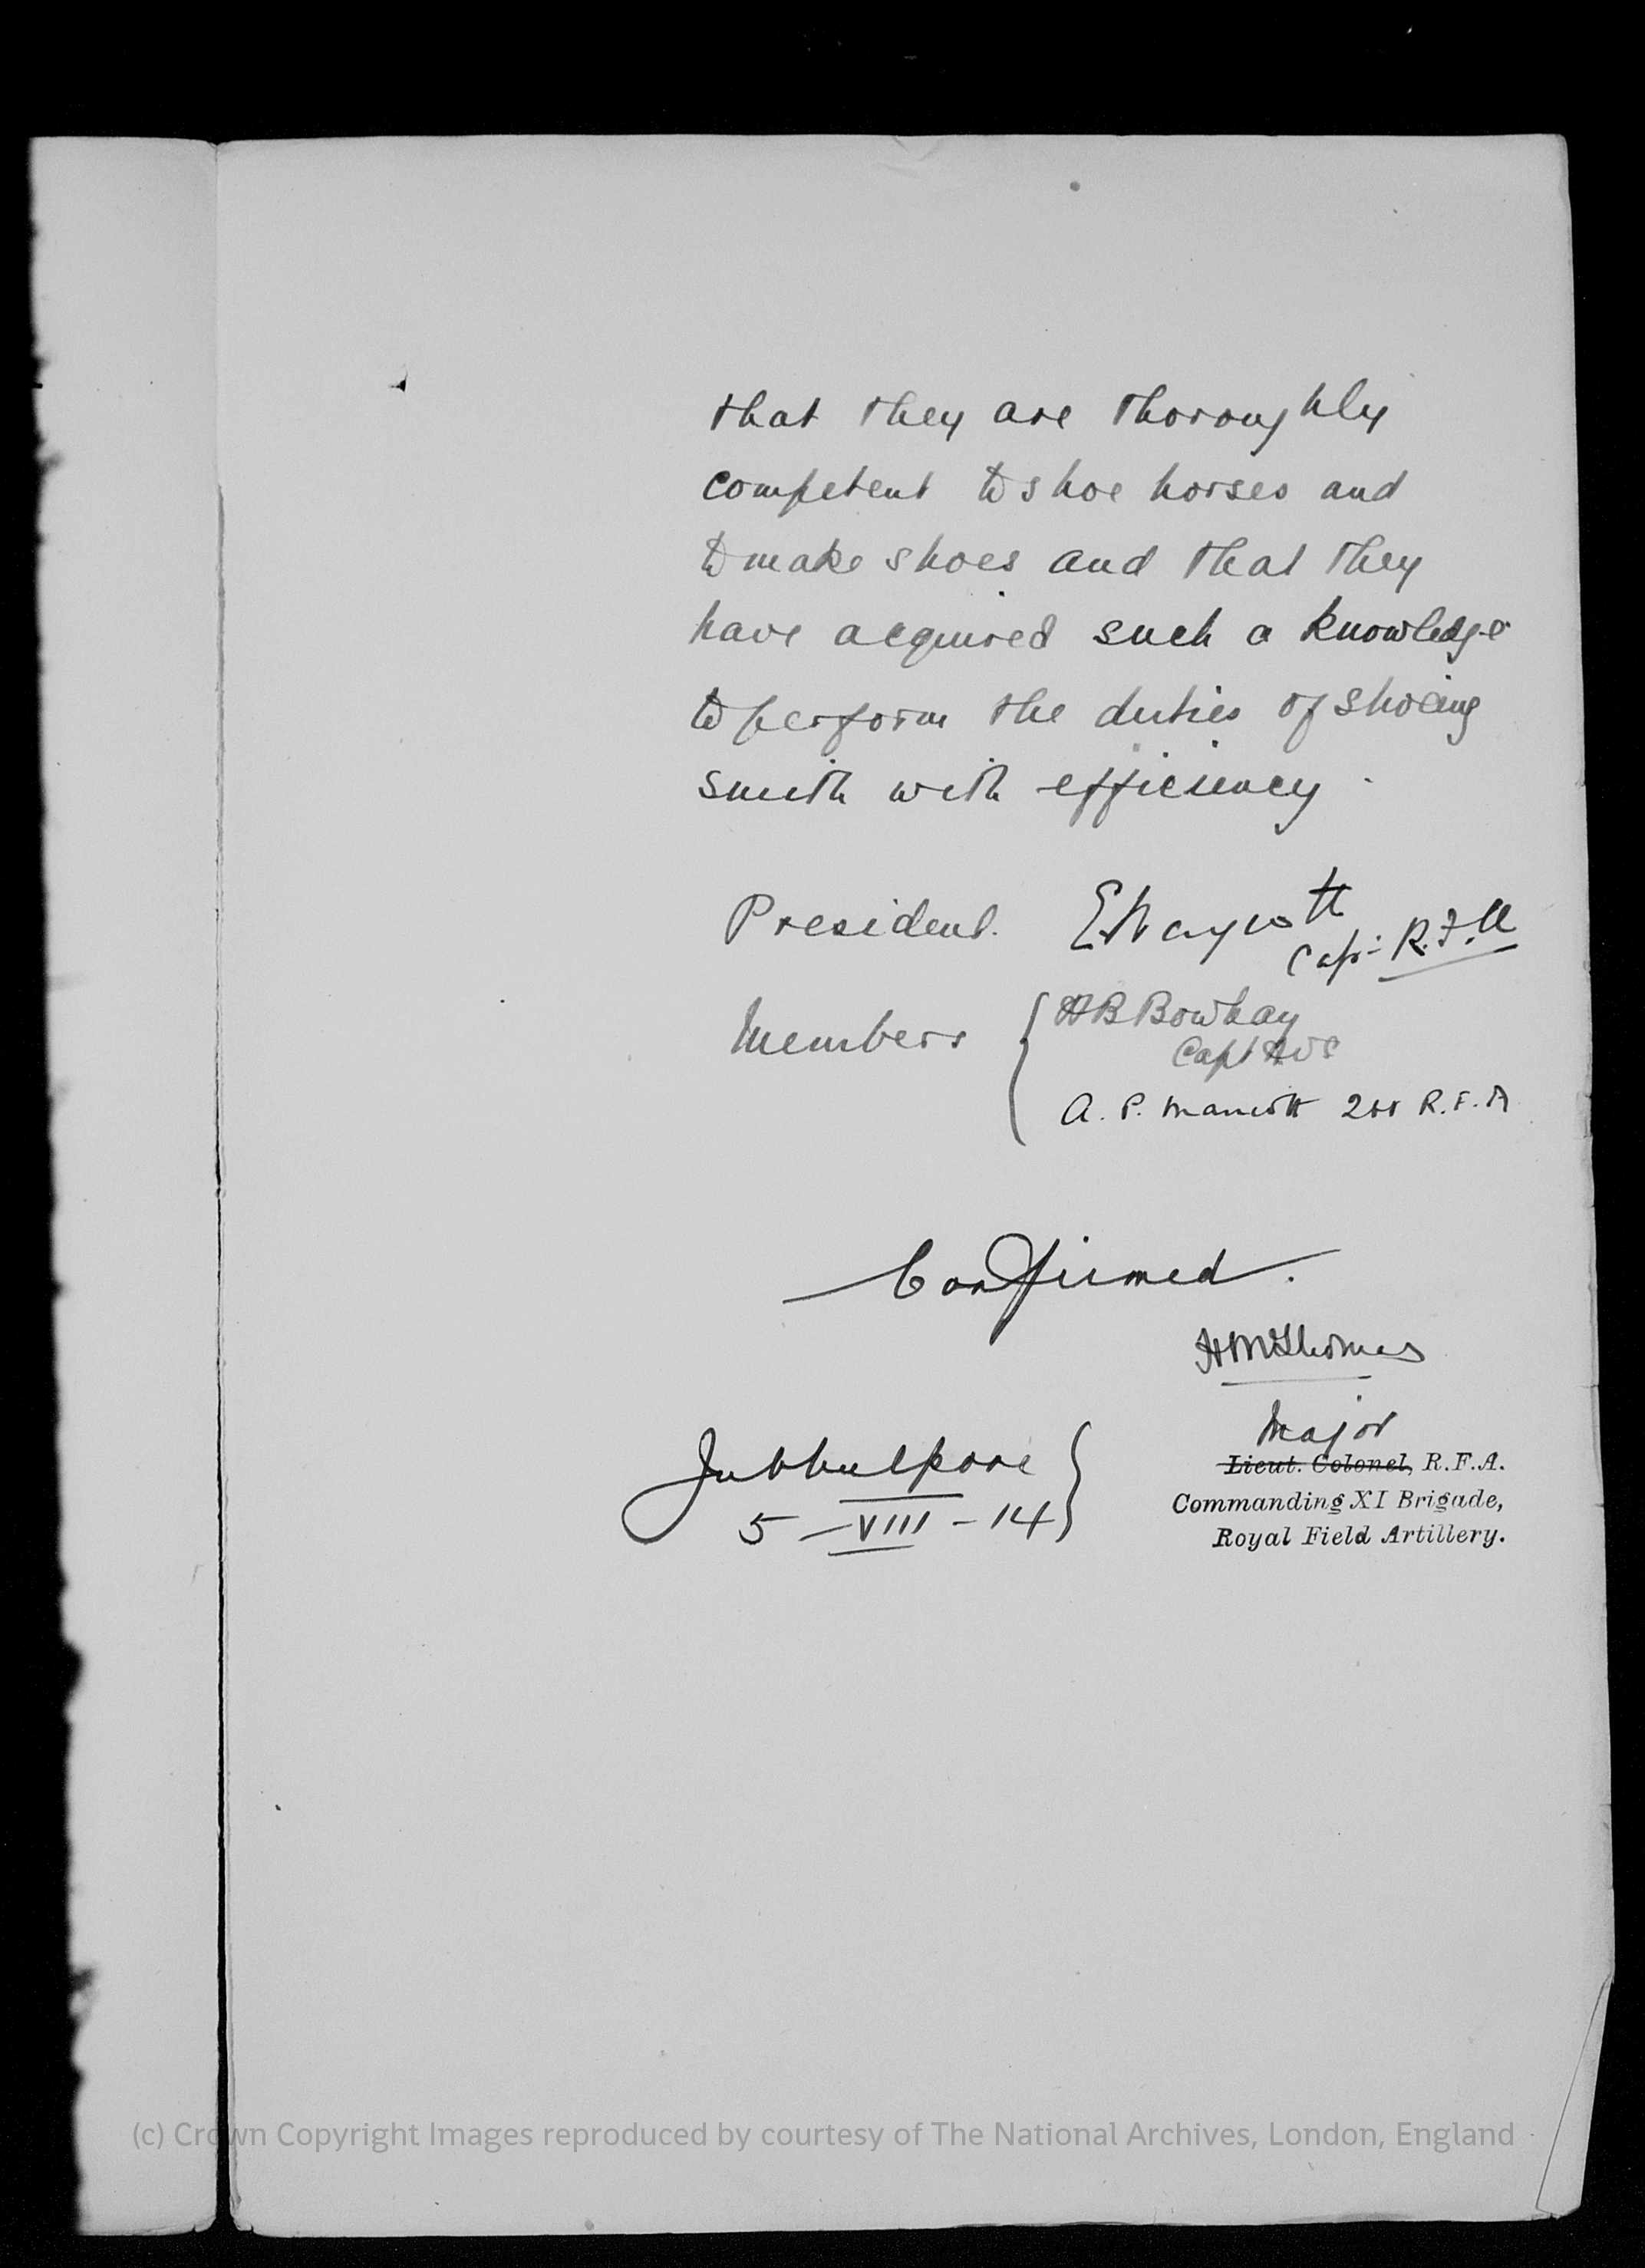 that they are thoroughly
competent to shoe horses and
to make shoes and that they
have acquired such a knowledge
to perform the duties of shoeing
smith with efficiency.
President. Capt: R.F.A
Members { H B Bowhay
Capt AVC
A. P. Marriott R.F.A
Confirmed.
H M Thomas
Major
Jubbulpore }
Lieut. Colonel, R.F.A.
Commanding XI Brigade,
5 - VIII - 14
Royal Field Artillery.
(c) Crown Copyright Images reproduced by courtesy of The National Archives, London, England